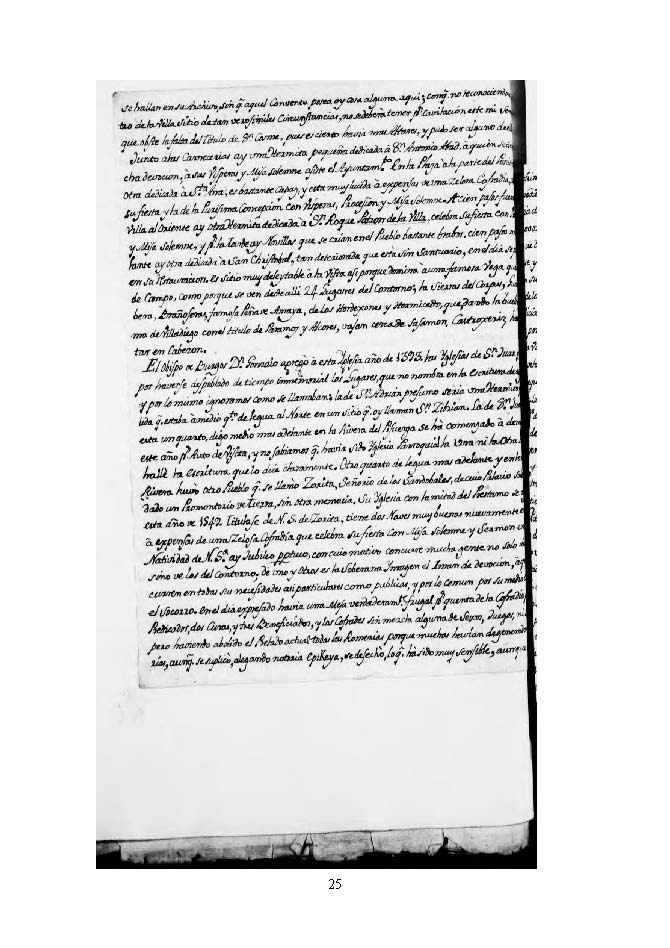 se hallan en su Archivo, sin q. aquel Convento posea oy cosa alguna aqui; conq. no reconociendo
tro de la Villa Sitio de tan verosimiles Circunstancias, no se deberá tener pr. Cavilacion este mi
que obste la falta del Titulo de Sn. Cosme, pues es cierto havia mas Altares, y pudo ser alguno de
Junto a las Carnecerias ay una Hermita pequeña dedicada à Sn. Antonio Abad. à quien se
cha devocion, à sus Visperas y Misa Solemne asiste el Ayuntamto. En la Plaza à la parte del
Otra dedicada à Sta. Ana, es bastante Capaz, y esta muy lucida à expensas de una Zelosa Cofradia,
su fiesta y la de la Purisima Concepcion con Visperas, Procesion y Misa Solemne. A cien pasos fuera
Villa al Oriente ay otra Hermita dedicada à Sn. Roque Patron de la Villa, celebra su fiesta con
y Misa Solemne, y pr. la tarde ay Novillos que se crian en el Pueblo bastante brabos. cien pasos
lante ay otra dedicada à San Christobal, tan deteriorada que esta sin Santuario, en el dia se
en su Restauracion. es sitio muy deleytable à la Vista asi porque domina a una famosa Vega
de Campo, como porque se ven desde alli 24 Lugares del Contorno; la Sierra del Carpas,
bera, Brañosera, famosa Peña de Amaya, de los Hordexones y Hormicedo, que dando la
ma de Villadiego con el titulo de Paramos y Alcores, vajan cerca de Sasamon, Castroxeriz
tar en Cabezon.
El Obispo de Burgos Dn. Gonzalo agregò à esta Yglesia año de 1393. las Yglesias de Sn. Juan
por haverse despoblado de tiempo immemorial los Lugares, que no nombra en la Escritura de
y por lo mismo ignoramos como se llamaban; la de Sn. Adrian presumo seria una Hermita
lida q. estaba à medio qto. de legua al Norte en un sitio q. oy llaman Sn. Zibrian. La de Sn.
esta un quarto, digo medio mas adelante en la Rivera del Pisuerga se hà comenzado à
este año pr. Auto de Visita, y no sabiamos q. havia sido Yglesia Parroquial la Una ni la Otra
hallè la Escritura que lo dice claramente. Otro quarto de legua mas adelante y en
Rivera huvo otro Pueblo q. se llamò Zorita, Señorio de los Sandobales, de cuio Palacio
dado un Promontorio de tierra, sin otra memoria. Su Yglesia con la mitad del Prestamo se
esta año de 1547. Titulase de N. S. de Zorita, tiene dos Naves muy buenas nuevamente
à expensas de una Zelosa Cofradia que celebra su fiesta con Misa Solemne y Sermon
Natividad de N. Sa. ay Jubileo pptuo, con cuio motivo concurre mucha gente no solo
sino de los del Contorno, de uno y Otros es la Soberana Ymagen el Iman de devocion,
curren en todas sus necesidades asi particulares como publicas, y por lo comun por su
el Socorro. En el dia expresado havia una Mesa verdaderamte. frugal pr. quenta de la Cofradia
Predicador, dos Curas, y tres Beneficiados, y los Cofrades sin mezcla alguna de Sexos, Juegos,
pero haviendo abolido el Prelado actual todas las Romerias porque muchas havian degenerado
rias, aunq. se suplicò, alegando notaria Epikeya, se desechò, lo q. hà sido muy sensible, aunque
25